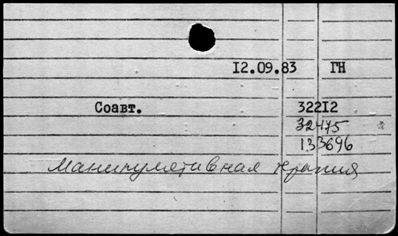 12.09.83 ГН
Соавт. 32212
32475
133696
Манипулятивная